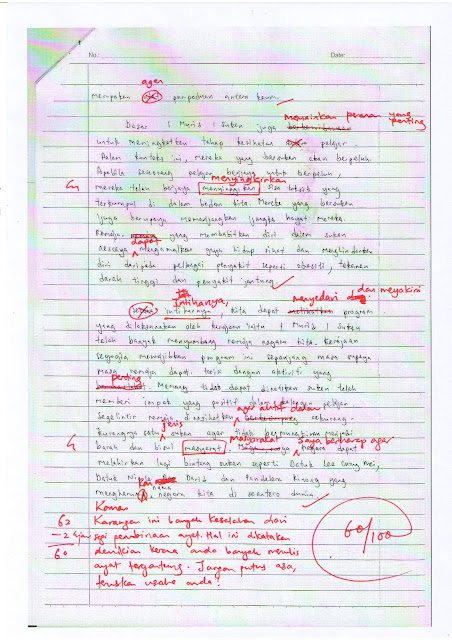 No.: Date:
agen
merupakan perpaduan antara kaum.
memainkan peranan yang penting
Dasar 1 Murid 1 Sukan juga
untuk meningkatkan tahap kesihatan pelajar.
Dalam konteks ini, mereka yang bersukan akan berpeluh.
Apabila seseorang pelajar berjaya untuk berpeluh,
menyingkirkan
mereka telah berjaya menyinggirkan sisa toksik yang
terkumpul di dalam badan kita. Mereka yang bersukan
juga berupaya memanjangkan jangka hayat mereka.
Remaja yang membabitkan diri dalam sukan
dapat
mengamalkan gaya hidup sihat dan menghindarkan
diri daripada pelbagai penyakit seperti obesiti, tekanan
darah tinggi dan penyakit jantung.
Intihanya, menyedari dan meyakini
intiharnya, kita dapat program
yang dilaksanakan oleh kerajaan iaitu 1 Murid 1 Sukan
telah banyak menyumbang remaja negara kita. Kerajaan
seyogia mewajibkan program ini sepanjang masa supaya
masa remaja dapat terisi dengan aktiviti yang
penting
Memang tidak dapat dinafikan sukan telah
memberi impak yang positif dalam kalangan pelajar.
agar aktif dalam
Segelintir remaja dinasihatkan
jenis
satu sukan agar tidak menjadi
masyarakat saya berharap agar
barah dan bisul masyarat. negara dapat
melahirkan lagi bintang sukan seperti Datuk Lee Chong Wei,
Datuk Nicole David dan Pandelela Rinong yang
nama
mengharumkan negara kita di seantero dunia.
Komen
62 Karangan ini banyak kesalahan dari
-2 segi pembinaan ayat. Hal ini dikatakan
60 demikian kerana anda banyak menulis
ayat tergantung. Jangan putus asa,
teruskan usaha anda!
60/100